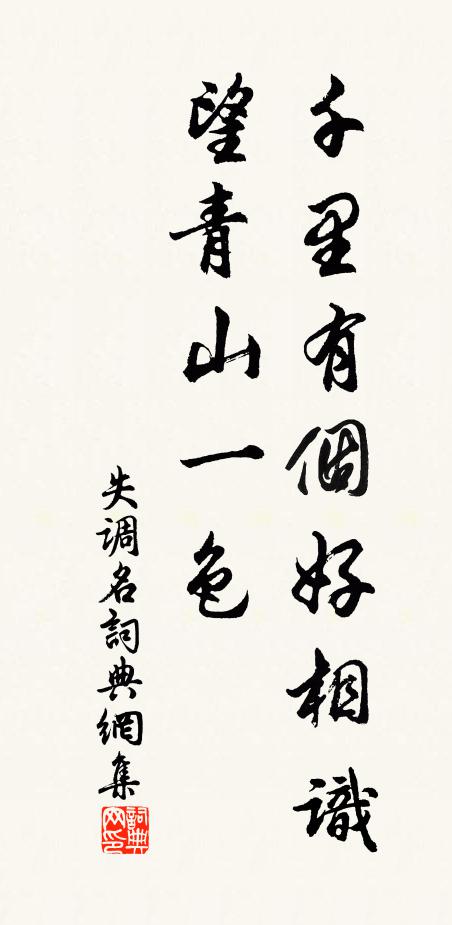 千里有個好相識
望青山一色
失调名詞典網集
詞典网印